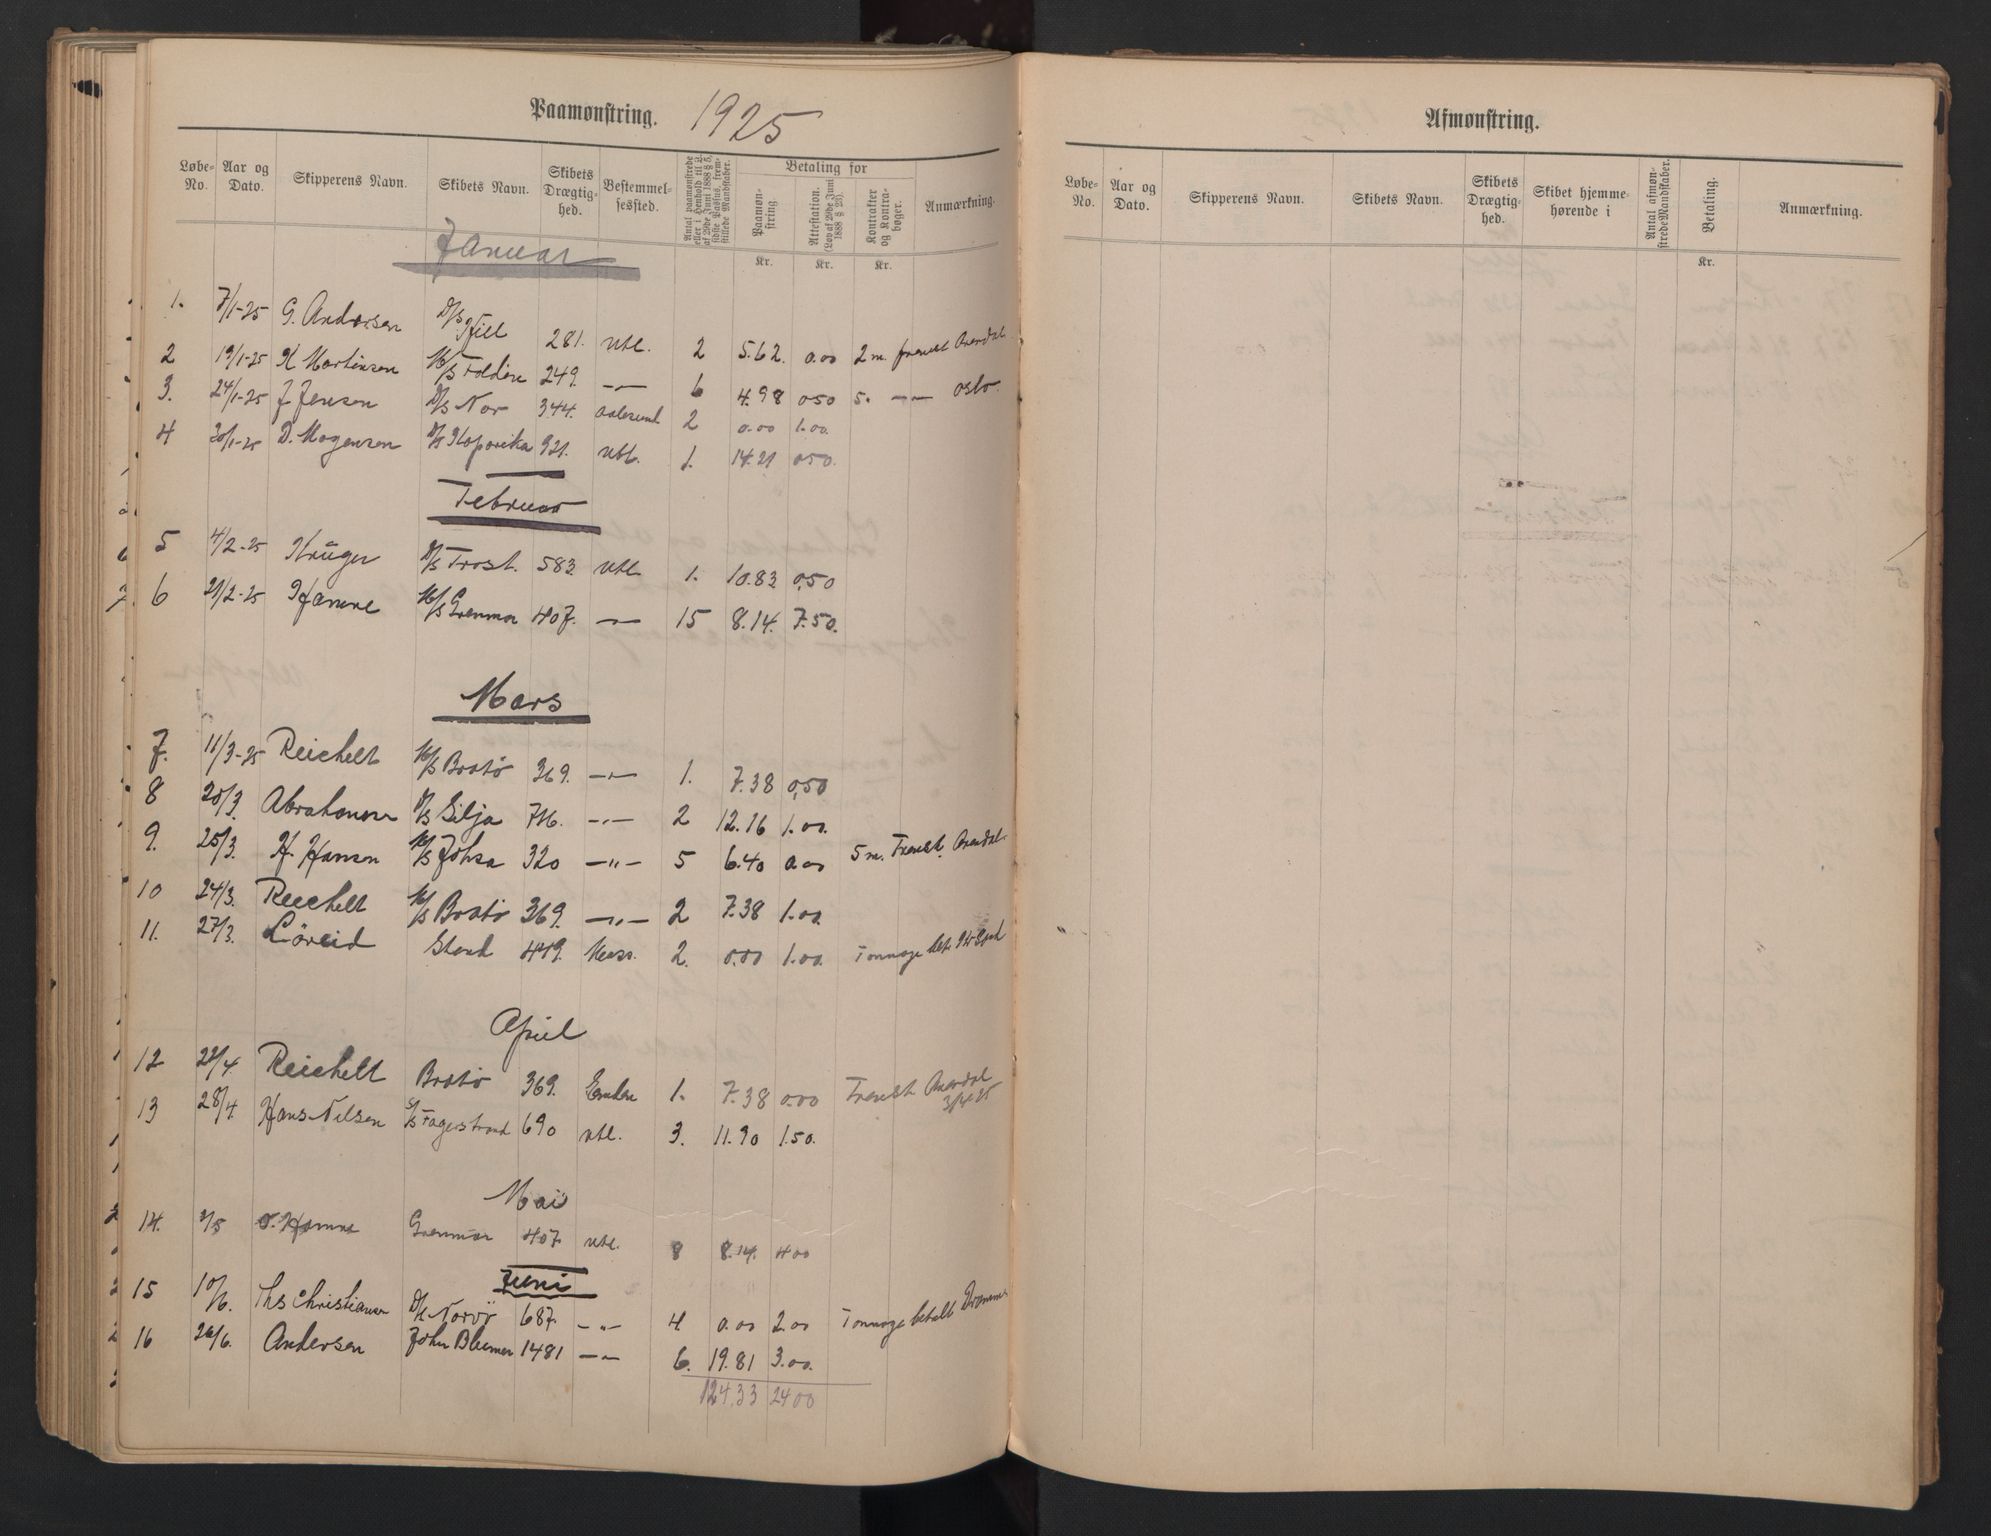 Paamønstring. 1925
Løbe-No. Aar og Dato. Skipperens Navn. Skibets Navn. Skibets Drægtighed. Bestemmelsessted. Antal paamønstrede eller i Henhold til L. af 29de Juni 1888 § 5, sidste Passus, fremstillede Mandskaber. Betaling for Paamønstring. Attestation. (Lov af 29de Juni 1888 § 23). Kontrakter og Kontrabøger. Anmærkning.
Kr. Kr. Kr.
Januar
1. 7/1-25 G. Andersen D/S Kjell 281. utl. 2 5.62. 0.00 2 m. fremst Arendal.
2 19/1-25 K Mortensen M/S Folden 249. -"- 6 4.98 050 5. -"- oslo.
3. 24/1-25 J. Jensen D/S Nor 344. aalesund 2 0.00 1.00.
4 30/1-25 D. Mogensen D/S 921. utl. 1. 14.21 050.
Februar
5 4/2-25 Krüger D/S Trost. 583. utl 1. 10.83 0,50
6 21/2-25 Hamre M/S Grenmar 407. -"- 15 8.14. 7.50.
Mars
7. 11/3-25 Reichelt M/S Bratö 369. -"- 1. 7.38 0,50
8 20/3. Abrahamsen D/S Silja 716. -"- 2 12.16 1.00.
9. 25/3. H. Hansen M/S Johsa 320 -"- 5 6.40 0.00 5 m. Fremst. Arendal.
10 24/3. Reichelt M/S Bratö 369. -"- 2 7.38 1.00.
11. 27/3. Löreid Stord 419. 2. 0.00 1.00. Tonnage bet.
April
12 22/4 Reichelt Bratö 369. Emden 1. 7.38 0.00 Fremst. Arendal 3/4 25
13 28/4. Hans Nilsen S/S Fagerstrand 690 utl. 3. 11.90 1.50.
Mai
14. 2/5 Hamre Grenmar 407. utl. 8 8.14. 400
Juni
15 10/6. Ths Christiansen D/S Norvö 687. -"- 4 0.00 2.00 Tonnage betalt Dramme
16 26/6. Andersen John Blumer 1481 -"- 6. 19.81 3.00.
124,33 2400
Afmønstring.
Løbe-No. Aar og Dato. Skipperens Navn. Skibets Navn. Skibets Drægtighed. Skibet hjemmehørende i Antal afmønstrede Mandskaber. Betaling. Anmærkning.
Kr.